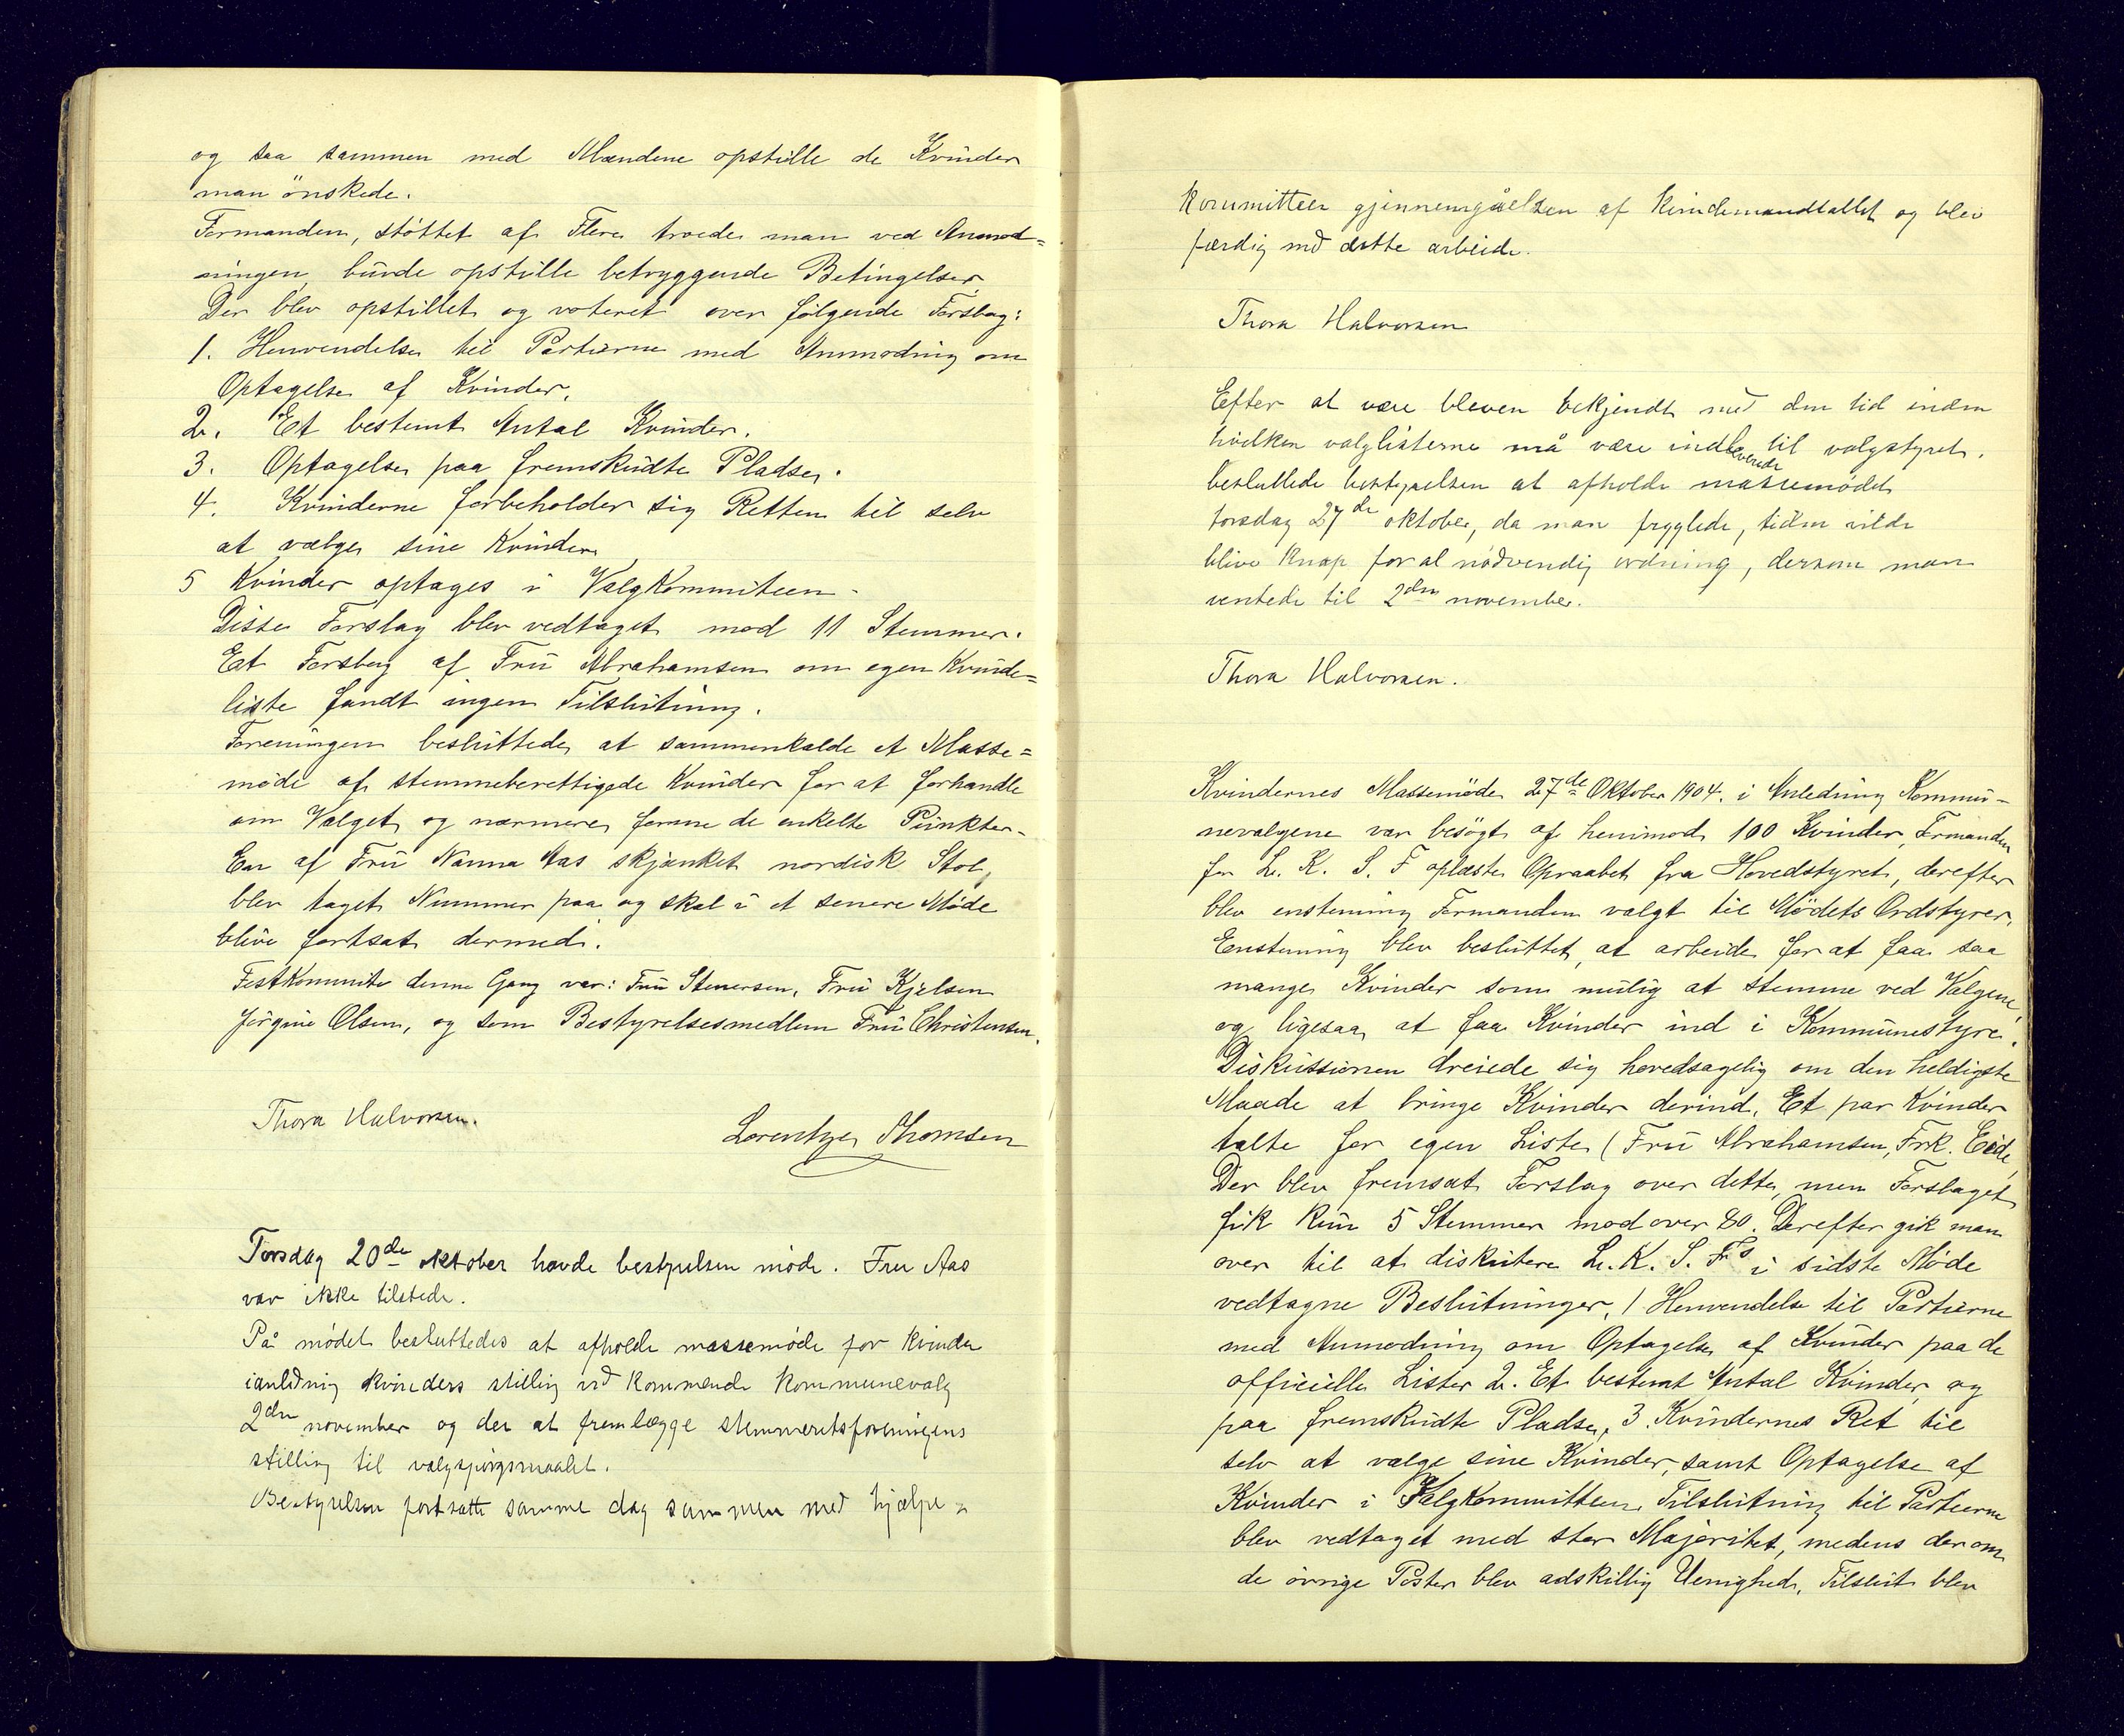 og saa sammen med Mændene opstille de Kvinder
man önskede.
Formanden, støttet af Flere troede man ved Anmod=
ningen burde opstille betryggende Betingelser.
Der blev opstillet og voteret over følgende Forslag:
1. Henvendelse til Partierne med Anmodning om
Optagelse af Kvinder.
2. Et bestemt Antal Kvinder.
3. Optagelse paa fremskudte Pladser.
4. Kvinderne forbeholder sig Retten til selv
at vælge sine Kvinder
5 Kvinder optages i Valgkommiteen.
Disse Forslag blev vedtaget mod 11 Stemmer.
Eet Forslag af Fru Abrahamsen om egen Kvinde=
liste fandt ingen Tilslutning.
Foreningen besluttede at sammenkalde et Masse=
møde af stemmeberettigede Kvinder for at forhandle
om Valget og nærmere forme de enkelte Punkter.
En af Fru Nanna Aas skjænket nordisk Stol,
blev taget Nummer paa og skal i et senere Møde
blive fortsat dermed.
Festkommite denne Gang var: Fru Stenersen, Fru Kjelsen
Jörgine Olsen, og som Bestyrelsesmedlem Fru Christensen.
Thora Halvorsen.
Lorentze Thomsen
Torsdag 20de oktober havde bestyrelsen møde. Fru Aas
var ikke tilstede.
På mødet besluttedes at afholde massemøde for kvinder
ianledning kvinders stilling ved kommende kommunevalg
2den november og der at fremlægge stemmeretsforeningens
stilling til valgspörgsmaalet.
Bestyrelsen fortsatte samme dag sammen med hjælpe=
kommitteen gjennemgåelsen af kvindemandtallet og blev
færdig med dette arbeide.
Thora Halvorsen
Efter at være bleven bekjendt med den tid inden
hvilken valglisterne må være indleverede til valgstyret,
besluttede bestyrelsen at afholde massemødet
torsdag 27de oktober, da man frygtede, tiden vilde
blive knap for al nødvendig ordning, dersom man
ventede til 2den november.
Thora Halvorsen.
Kvindernes Massemøde 27de Oktober 1904. i Anledning Kommu-
nevalgene var besøgt af henimod 100 Kvinder, Formanden
for L. K. S. F oplæste Opraabet fra Hovedstyret, derefter
blev enstemmig Formanden valgt til Mödets Ordstyrer.
Eenstemmig blev besluttet, at arbeide for at faa saa
mange Kvinder som mulig at stemme ved Valgene,
og ligesaa at faa Kvinder ind i Kommunestyre.
Diskussionen dreiede sig hovedsagelig om den heldigste
Maade at bringe Kvinder derind. Et par Kvinder
talte for egen Liste (Fru Abrahamsen, Frk. Eide,
Der blev fremsat Forslag over dette, men Forslaget
fik kun 5 Stemmer mod over 80. Derefter gik man
over til at diskutere L. K. S. F's i sidste Möde
vedtagne Beslutninger, 1 Henvendelse til Partierne
med Anmodning om Optagelse af Kvinder paa de
officielle Lister 2. Et bestemt Antal Kvinder, og
paa fremskudte Pladser, 3. Kvindernes Ret til
selv at vælge sine Kvinder, samt Optagelse af
Kvinder i Valgkommitteen. Tilslutning til Partierne
blev vedtaget med stor Majoritet, medens der om
de övrige Poster blev adskillig Uenighed. Tilslut blev